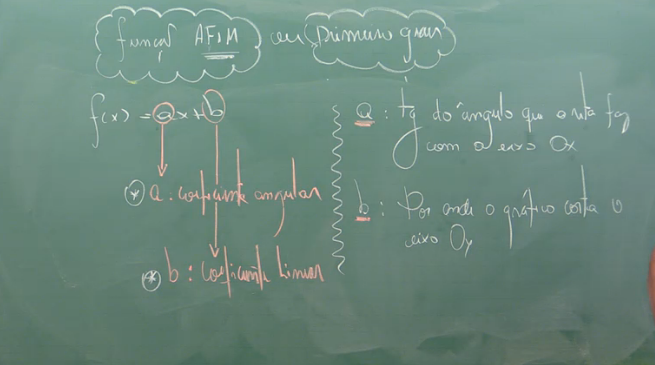 função AFIM ou Primeiro grau
f(x) = ax+b
* a: coeficiente angular
* b: coeficiente linear
a: tg do ângulo que a reta faz
com o eixo Ox
b: Por onde o gráfico corta o
eixo Oy